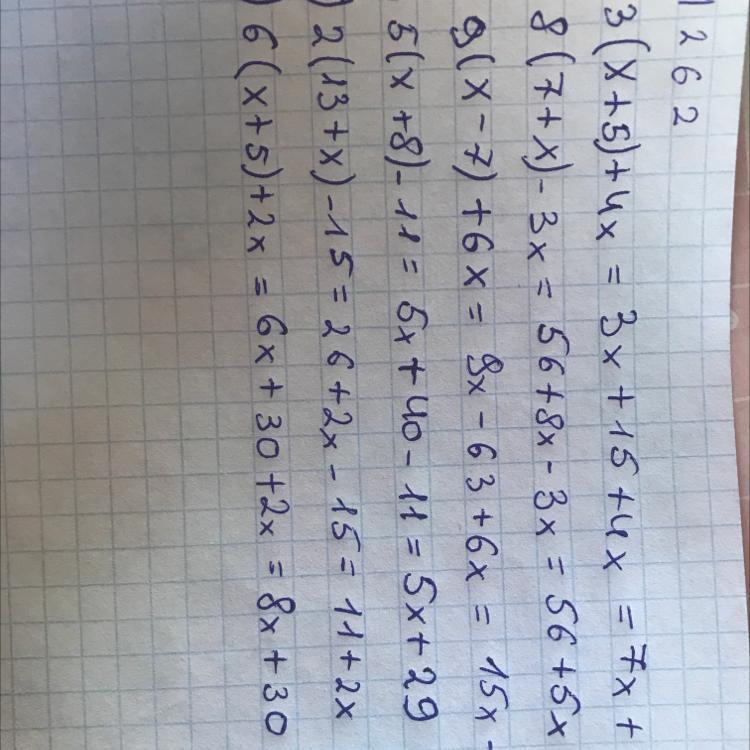 1262
3(x+5)+4x = 3x+15+4x = 7x+
8(7+x)-3x = 56+8x-3x = 56+5x
9(x-7)+6x = 9x-63+6x = 15x-
5(x+8)-11 = 5x+40-11 = 5x+29
)2(13+x)-15 = 26+2x-15 = 11+2x
)6(x+5)+2x = 6x+30+2x = 8x+30